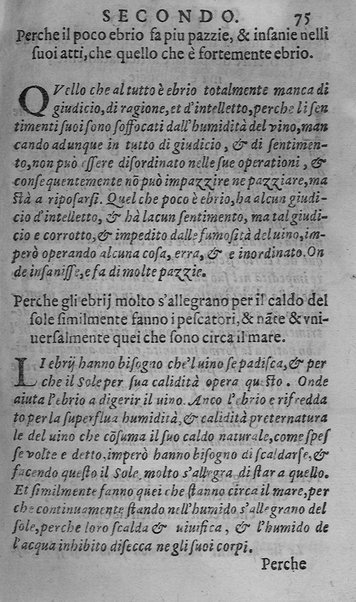 SECONDO. 75
Perche il poco ebrio fa piu pazzie, & insanie nelli
suoi atti, che quello che è fortemente ebrio.
QVello che al tutto è ebrio totalmente manca di
giudicio, di ragione, et d'intelletto, perche li sen
timenti suoi sono soffocati dall'humidità del vino, man
cando adunque in tutto di giudicio, & di sentimen-
to, non può essere disordinato nelle sue operationi, &
consequentemente nõ può impazzire ne pazziare, ma
stà a riposarsi. Quel che poco è ebrio, ha alcun giudi-
cio d'intelletto, & hà alcun sentimento, ma tal giudi-
cio e corrotto, & impedito dalle famosità del uino, im-
però operando alcuna cosa, erra, & e inordinato. On
de insanisse, e fa di molte pazzie.
Perche gli ebrij molto s'allegrano per il caldo del
sole similmente fanno i pescatori, & nãte & vni-
uersalmente quei che sono circa il mare.
LI ebrij hanno bisogno che'l uino se padisca, & per
che il Sole per sua calidità opera questo. Onde
aiuta l'ebrio a digerir il uino. Anco l'ebrio e rifredda
to per la superflua humidità, & calidità preternatura
le del uino che cõsuma il suo caldo naturale, come spes
se volte e detto, imperò hanno bisogno di scaldarse, &
facendo questo il Sole, molto s'allegra di star a quello.
Et similmente fanno quei che stanno circa il mare, per
che continuamente stando nell'humido s'allegrano del
sole, perche loro scalda & uiuifica, & l'humido de
l'acqua inhibito disecca negli suoi corpi.
Perche